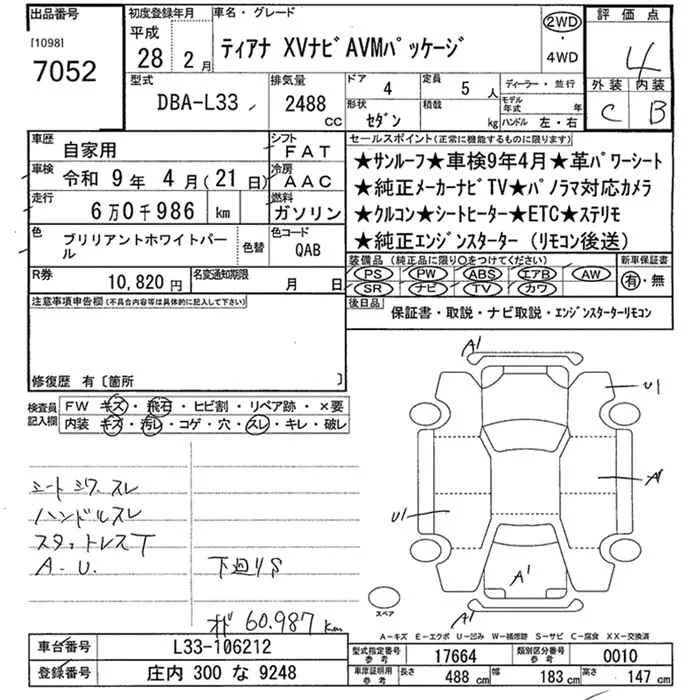 出品番号
[1098]
7052
初度登録年月
平成
28年 2月
車名・グレード
ティアナ XVナビAVMパッケージ
2WD
・
4WD
評価点
4
外装 内装
C B
型式
DBA-L33
排気量
2488
CC
ドア 4
形状 セダン
定員 5人
積載 kg
ディーラー・並行
モデル年式 年
ハンドル 左・右
車歴 自家用
シフト FAT
車検 令和 9年 4月(21日)
冷房 AAC
走行 6万0千986 km
燃料 ガソリン
色 ブリリアントホワイトパール
色替
色コード QAB
R券 10,820円
名変通知期限 月 日
セールスポイント(正常に機能するものに限ります)
★サンルーフ★車検9年4月★革パワーシート
★純正メーカーナビTV★パノラマ対応カメラ
★クルコン★シートヒーター★ETC★ステリモ
★純正エンジンスターター(リモコン後送)
装備品(純正品に限り○をつけてください)
PS PW ABS エアB AW
SR ナビ TV カワ
新車保証書
有・無
後日品 保証書・取説・ナビ取説・エンジンスターターリモコン
注意事項申告欄(不具合内容等は具体的に記入して下さい)
修復歴 有〔箇所 〕
検査員記入欄
FW キズ・飛石・ヒビ割・リペア跡・×要
内装 キズ・汚レ・コゲ・穴・スレ・キレ・破レ
シートシワ.スレ
ハンドルスレ
スタットレスT
A.U.
下廻りS
オド 60.987 km
A1
U1
A1
U1
A1
A1
スペア
A-キズ E-エクボ U-凹み W-補修跡 S-サビ C-腐食 XX-交換済
車台番号 L33-106212
登録番号 庄内 300 な 9248
型式指定番号参考 17664
類別区分番号参考 0010
車庫証明用参考 長さ 488 cm 幅 183 cm 高さ 147 cm